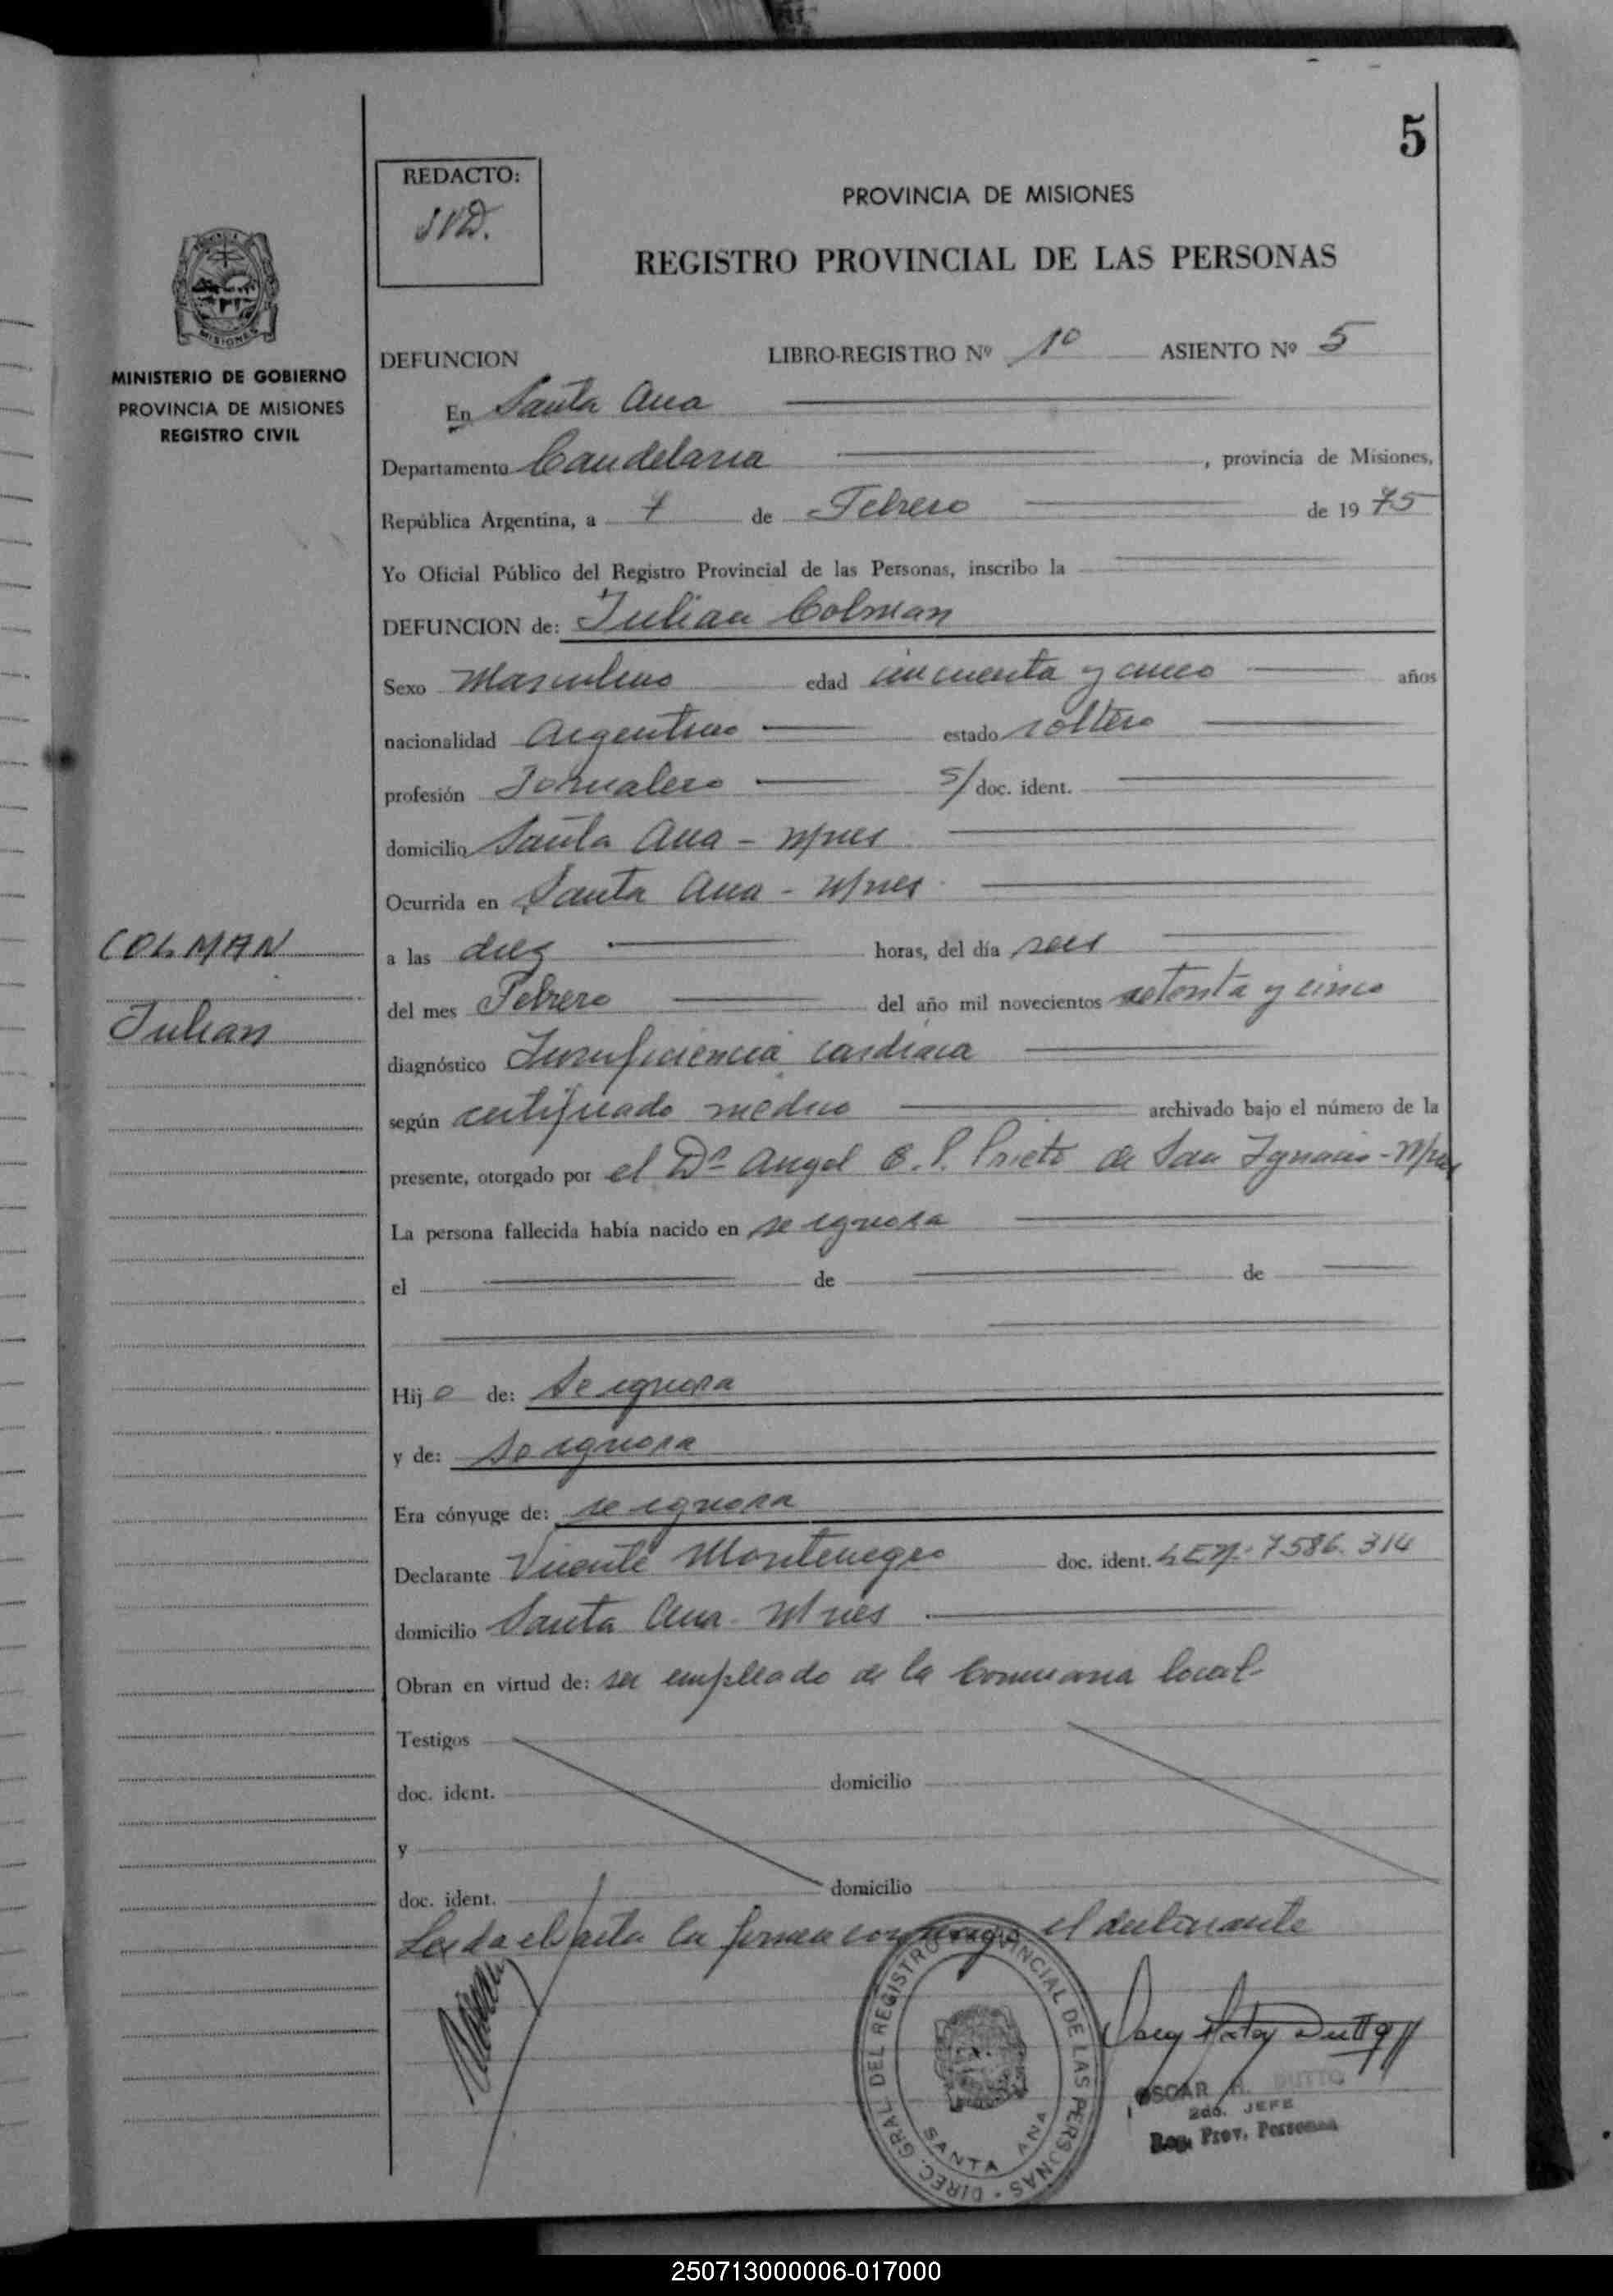 5
REDACTO:
PROVINCIA DE MISIONES
REGISTRO PROVINCIAL DE LAS PERSONAS
MISIONES
MINISTERIO DE GOBIERNO
PROVINCIA DE MISIONES
REGISTRO CIVIL
DEFUNCION LIBRO-REGISTRO Nº 1º ASIENTO Nº 5
En Santa Ana
Departamento Candelaria, provincia de Misiones,
República Argentina, a 7 de Febrero de 1975
Yo Oficial Público del Registro Provincial de las Personas, inscribo la
DEFUNCION de: Julian Colman
Sexo Masculino edad cincuenta y cinco años
nacionalidad Argentino estado soltero
profesión Jornalero s/ doc. ident.
domicilio Santa Ana - Mnes
Ocurrida en Santa Ana - Mnes
COLMAN
a las diez horas, del día seis
del mes Febrero del año mil novecientos setenta y cinco
Julian
diagnóstico Insuficiencia cardiaca
según certificado medico archivado bajo el número de la
presente, otorgado por el Dr Angel C. P. Prieto de San Ignacio - Mnes
La persona fallecida había nacido en se ignora
el de de
Hijo de: Se ignora
y de: Se ignora
Era cónyuge de: se ignora
Declarante Vicente Montenegro doc. ident. LENº 7586.314
domicilio Santa Ana - Mnes
Obran en virtud de: ser empleado de la Comuna local-
Testigos
doc. ident. domicilio
y
doc. ident. domicilio
Leida el acta la firma conmigo el declarante
DIREC. GRAL DEL REGISTRO PROVINCIAL DE LAS PERSONAS
SANTA ANA
OSCAR H. DUTTO
2do. JEFE
Reg. Prov. Personas
250713000006-017000